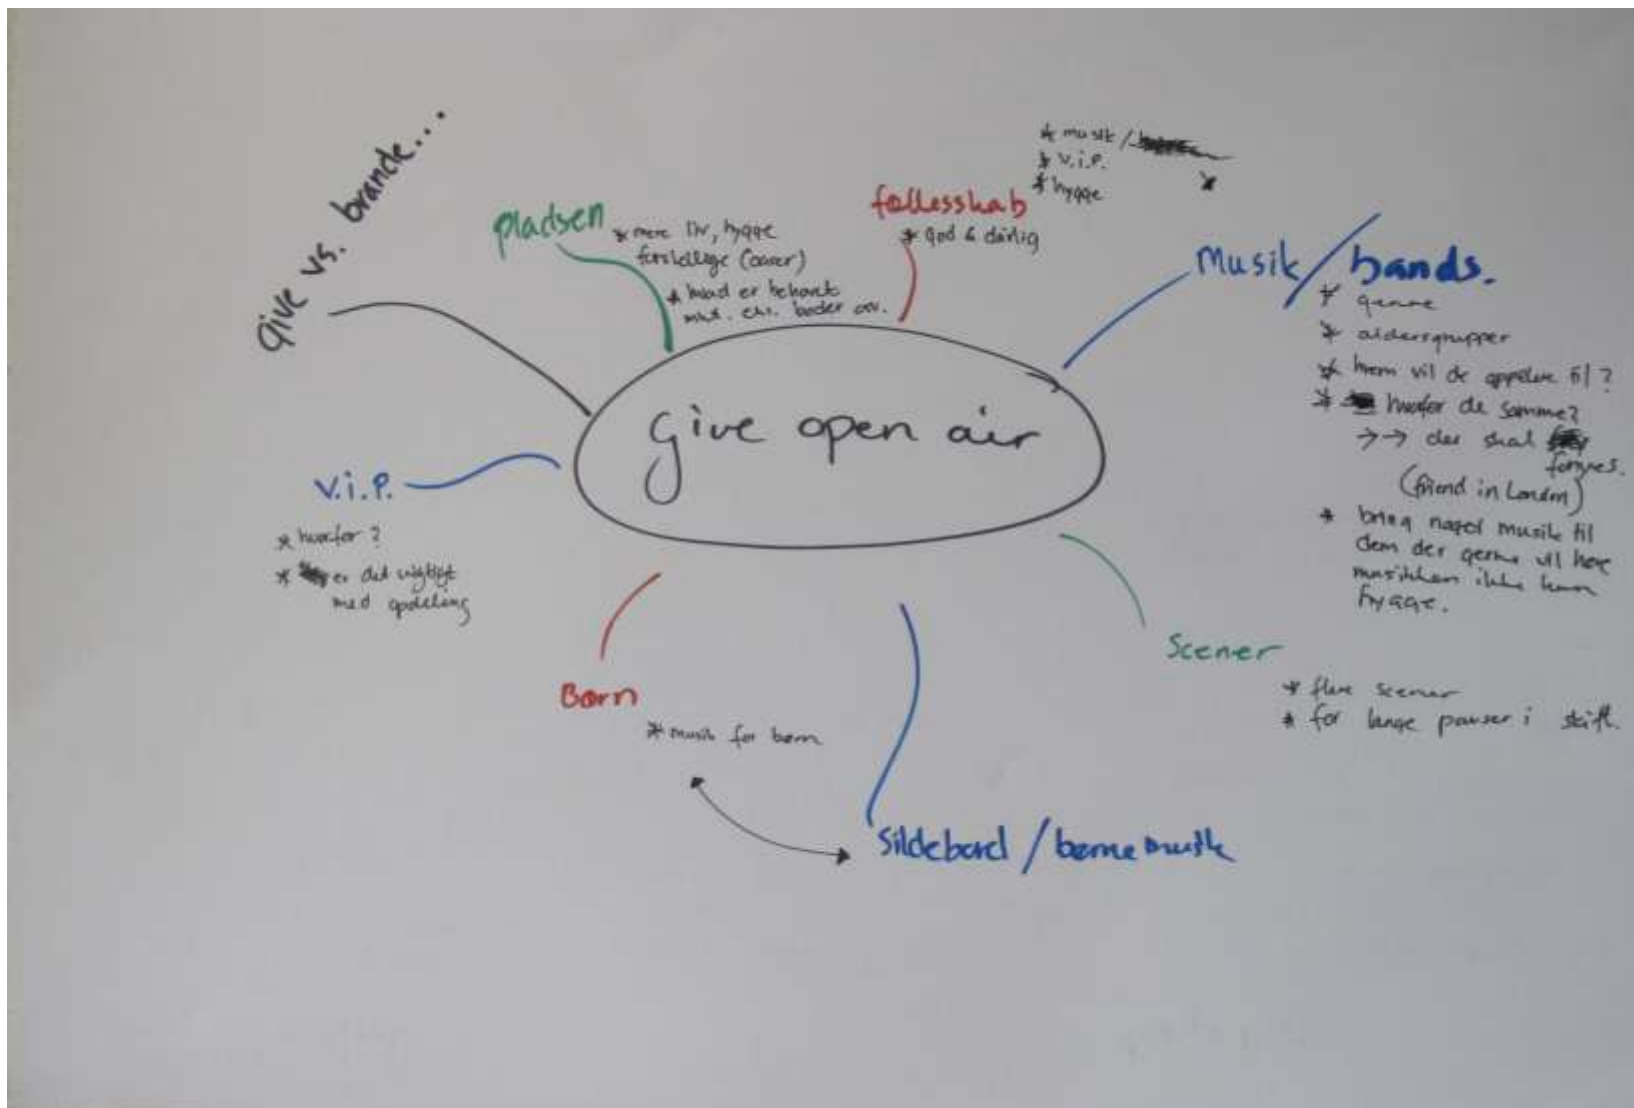 Give vs. brande...
pladsen
* mere liv, hygge
forskellige (oaser)
* hvad er behovet
mht. eks. boder osv.
fællesskab
* god & dårlig
* musik /
* v.i.p.
* hygge
Musik / bands.
* genre
* aldersgrupper
* hvem vil de appelere til?
* hvorfor de samme?
→→ der skal
fornyes.
(friend in London)
* bring noget musik til
dem der gerne vil høre
musikken ikke kun
hygge.
Give open air
v.i.p.
* hvorfor?
* er det vigtigt
med opdeling
Børn
* musik for børn
Scener
* flere scener
* for lange pauser i skift.
Sildebord / børnemusik